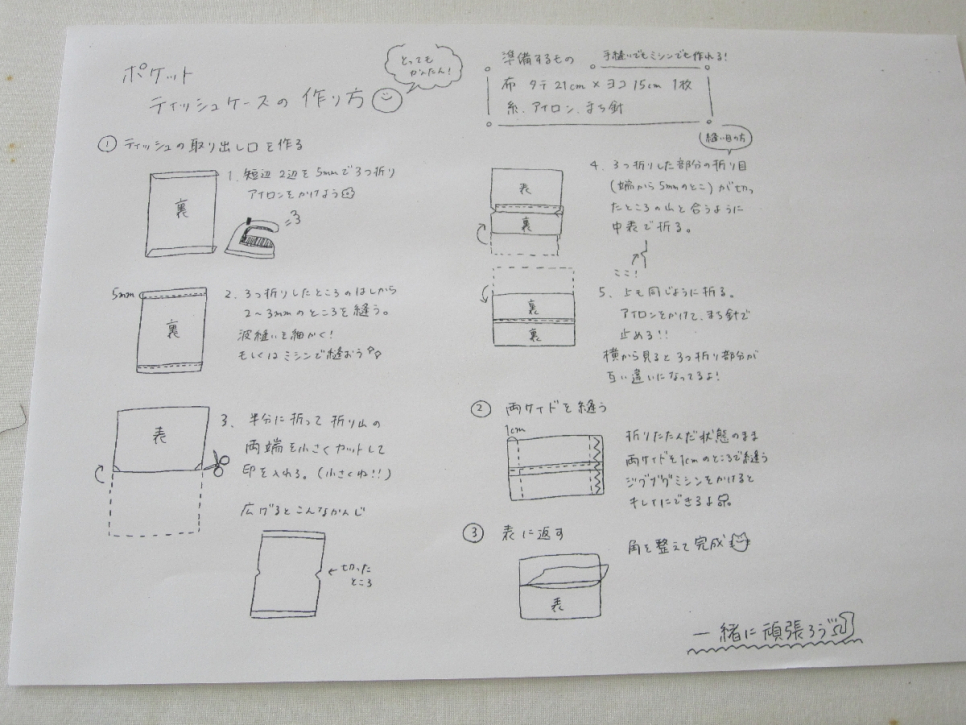 ポケット
ティッシュケースの作り方
とっても
かんたん!
準備するもの
手縫いでもミシンでも作れる!
布 タテ21cm×ヨコ15cm 1枚
糸、アイロン、まち針
① ティッシュの取り出し口を作る
1. 短辺2辺を5mmで3つ折り
アイロンをかけよう
裏
5mm
裏
2. 3つ折りしたところのはしから
2〜3mmのところを縫う。
波縫いを細かく!
もしくはミシンで縫おう
表
3. 半分に折って折り山の
両端を小さくカットして
印を入れる。(小さくね!!)
広げるとこんなかんじ
←切った
ところ
縫い目の方
表
裏
4. 3つ折りした部分の折り目
(端から5mmのとこ)が切っ
たところの山と合うように
中表で折る。
ここ!
裏
裏
5. 上も同じように折る。
アイロンをかけて、まち針で
止める!!
横から見ると3つ折り部分が
互い違いになってるよ!
② 両サイドを縫う
1cm
折りたたんだ状態のまま
両サイドを1cmのところで縫う
ジグザグミシンをかけると
キレイにできるよ
③ 表に返す
表
角を整えて完成
一緒に頑張ろう